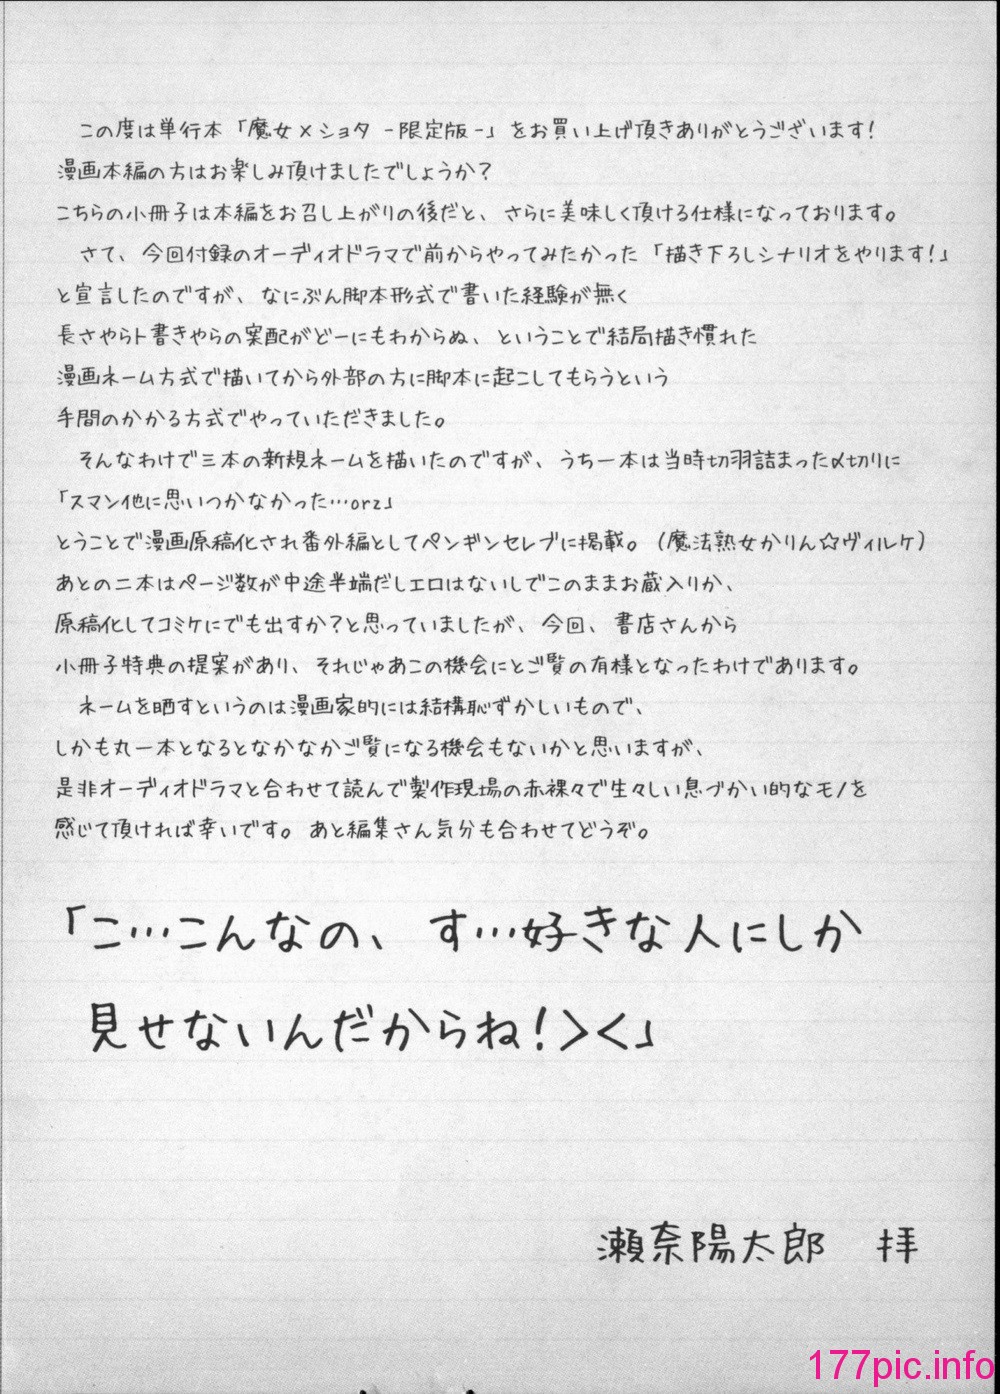 この度は単行本「魔女×ショタ -限定版-」をお買い上げ頂きありがとうございます！
漫画本編の方はお楽しみ頂けましたでしょうか？
こちらの小冊子は本編をお召し上がりの後だと、さらに美味しく頂ける仕様になっております。
さて、今回付録のオーディオドラマで前からやってみたかった「描き下ろしシナリオをやります！」
と宣言したのですが、なにぶん脚本形式で書いた経験が無く
長さやらト書きやらの案配がどーにもわからぬ、ということで結局描き慣れた
漫画ネーム方式で描いてから外部の方に脚本に起こしてもらうという
手間のかかる方式でやっていただきました。
そんなわけで三本の新規ネームを描いたのですが、うち一本は当時切羽詰まった〆切りに
「スマン他に思いつかなかった…orz」
とうことで漫画原稿化され番外編としてペンギンセレブに掲載。（魔法熟女かりん☆ヴィルケ）
あとの二本はページ数が中途半端だしエロはないしでこのままお蔵入りか、
原稿化してコミケにでも出すか？と思っていましたが、今回、書店さんから
小冊子特典の提案があり、それじゃあこの機会にとご覧の有様となったわけであります。
ネームを晒すというのは漫画家的には結構恥ずかしいもので、
しかも丸一本となるとなかなかご覧になる機会もないかと思いますが、
是非オーディオドラマと合わせて読んで製作現場の赤裸々で生々しい息づかい的なモノを
感じて頂ければ幸いです。あと編集さん気分も合わせてどうぞ。
「こ…こんなの、す…好きな人にしか
見せないんだからね！＞＜」
瀬奈陽太郎 拝
177pic.info